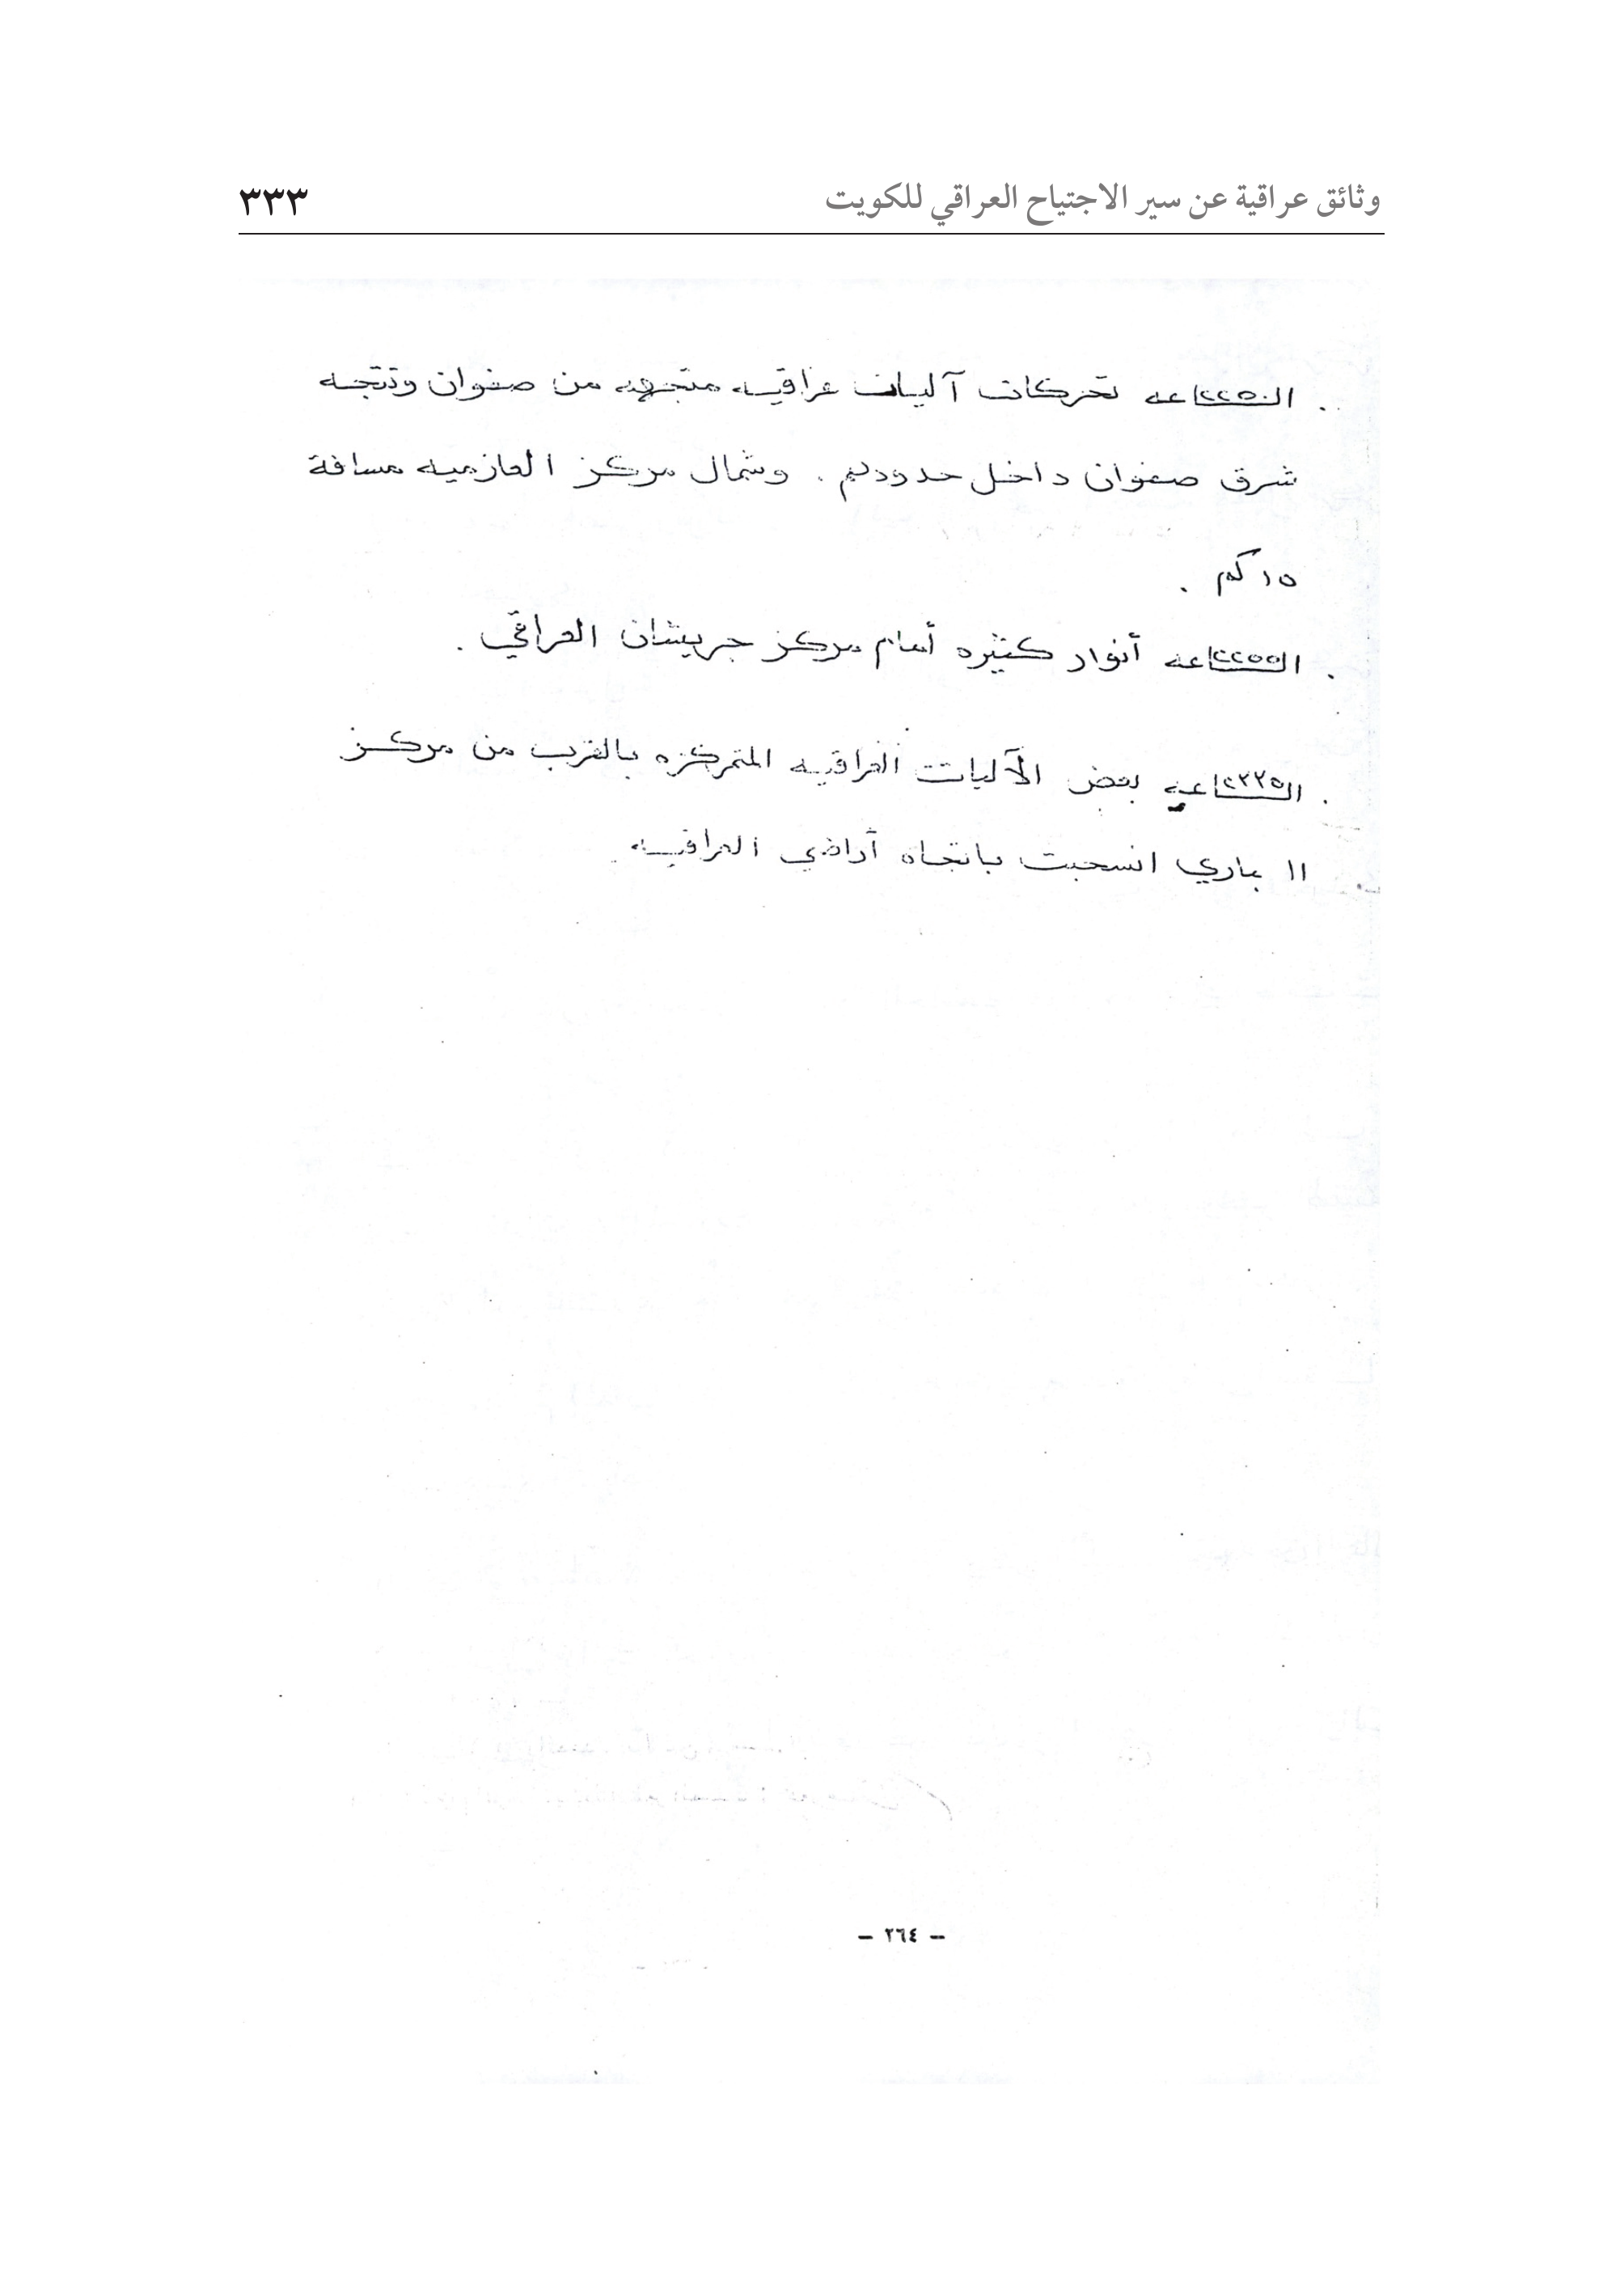 وثائق عراقية عن سير الاجتياح العراقي للكويت ٣٣٣
. الساعه ٢٢٥٠ تحركات آليات عراقيه متجهه من صفوان وتتجه
شرق صفوان داخل حدودهم . وشمال مركز العازميه مسافة
١٥ كم .
. الساعه ٢٢٥٥ أنوار كثيره أمام مركز جريشان العراقي .
. الساعه ٢٣٣٥ بعض الآليات العراقيه المتمركزه بالقرب من مركز
١١ باري انسحبت باتجاه أراضي العراقيه .
- ٢٦٤ -